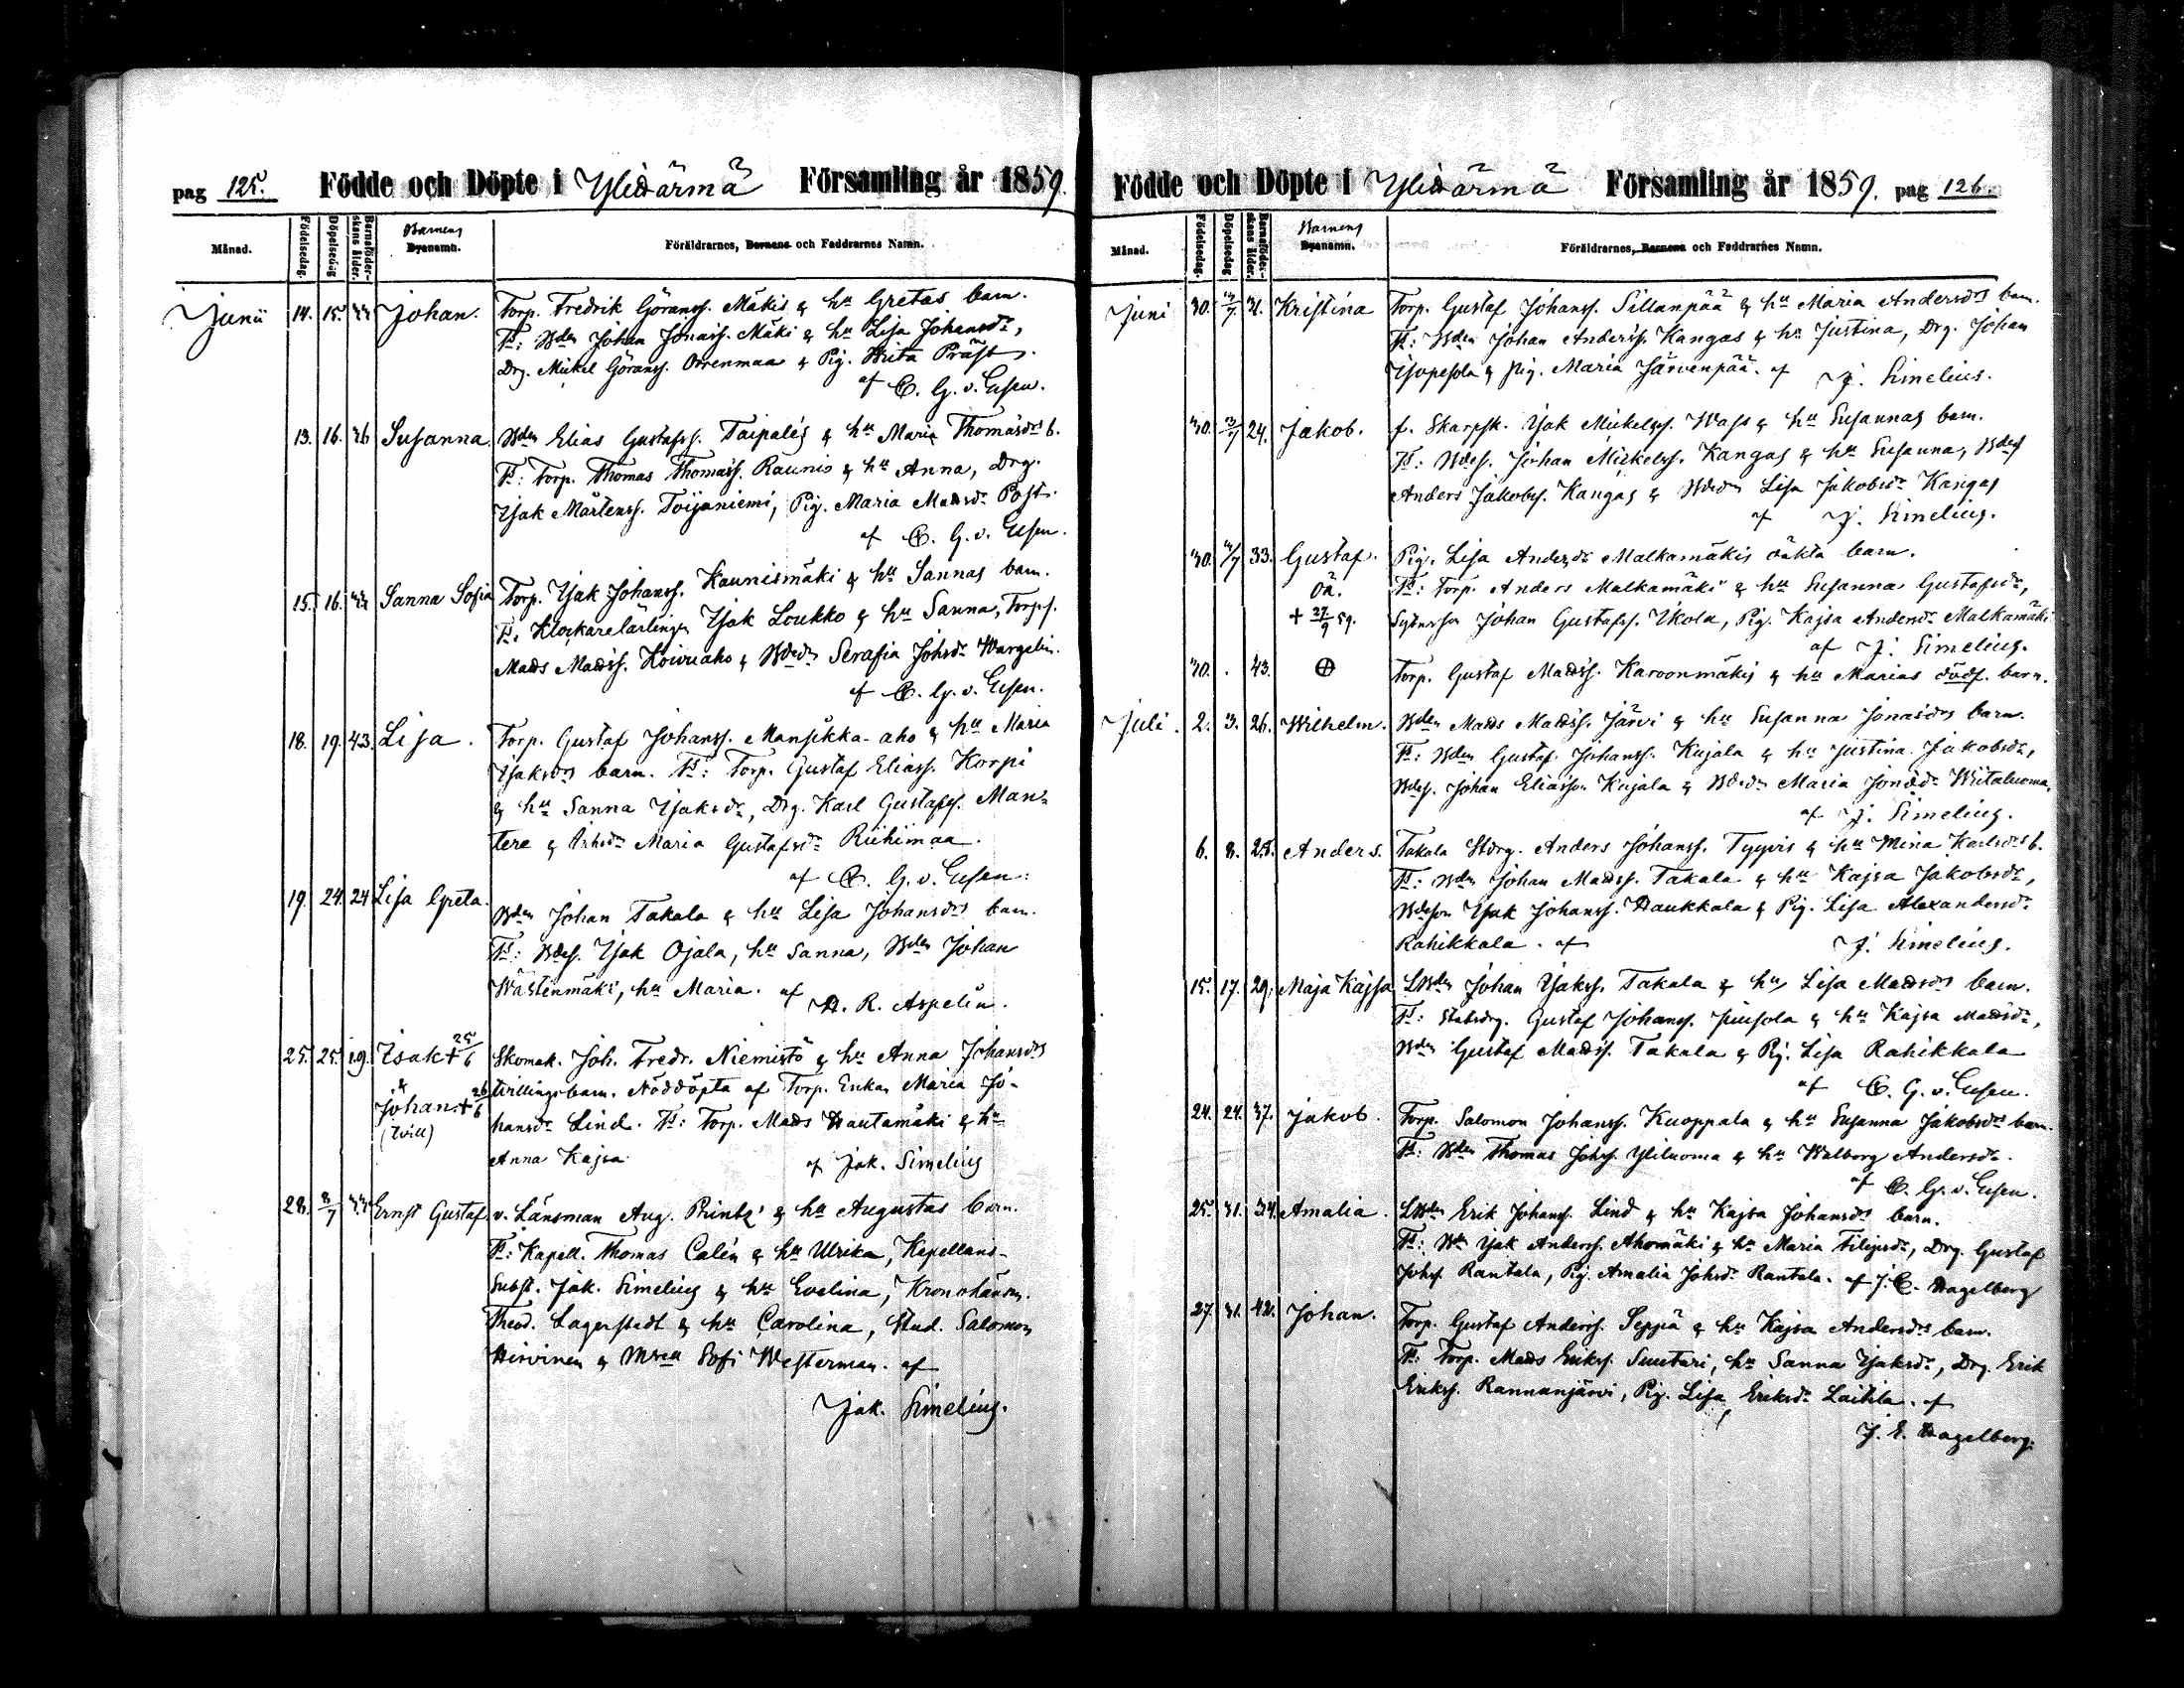 pag 125. Födde och Döpte i Ylihärmä Församling år 1859.
Månad. Födelsedag. Döpelsedag Barnaföder-skans ålder. Barnens Byanamn. Föräldrarnes, Barnens och Faddrarnes Namn.
Junii 14. 15. Johan. Torp. Fredrik Göranss. Mäkis & hu Gretas barn.
Ft: Bden Johan Jonass. Mäki & hu Lisa Johansdr,
Drg. Mickel Göranss. Orrenmaa & Pig. Brita Präst.
af C. G. v. Essen.
13. 16. 26 Susanna. Bden Elias Gustafss. Taipales & hu Maria Thomasdrs b.
Ft: Torp. Thomas Thomass. Raunio & hu Anna, Drg.
Isak Mårtenss. Toijaniemi, Pig. Maria Mattsdr Post.
af C. G. v. Essen.
15. 16. Sanna Sofia Torp. Isak Johanss. Kaunismäki & hu Sannas barn.
Ft. Klockarelärlingen Isak Loukko & hu Sanna, Torps.
Matts Mattss. Koivuaho & Bdedr Serafia Johsdr Wargelin.
af C. G. v. Essen.
18. 19. 43. Lisa. Torp. Gustaf Johanss. Mansikka-aho & hu Maria
Isaksdrs barn. Ft: Torp. Gustaf Eliass. Korpi
& hu Sanna Isaksdr, Drg. Karl Gustafss. Man-
tere & Maria Gustafsdr Riihimaa.
af C. G. v. Essen.
19. 24. 24 Lisa Greta. Bden Johan Takala & hu Lisa Johansdrs barn.
Ft: Bdes. Isak Ojala, hu Sanna, Bden Johan
Wästenmäki, hu Maria. af
H. R. Aspelin.
25. 25. 19. Isak + 25/6 Skomak. Joh. Fredr. Niemistö & hu Anna Johansdrs
& Johan + 26/6 tvillingsbarn. Nöddöpta af Torp. Enkan Maria Jo-
(tvill) hansdr Lind. Ft: Torp. Matts Hautamäki & hu
Anna Kajsa af Jak. Simelius
28. 3/7 Ernst Gustaf. v. Länsman Aug. Printz' & hu Augustas barn.
Ft: Kapell. Thomas Calén & hu Ulrika, Kapellans-
Subst. Jak. Simelius & hu Evelina, Kronolänsm.
Theod. Lagerstedt & hu Carolina, Stud. Salomon
Hirvinen & Msell Sofi Westerman. af
Jak. Simelius.
Födde och Döpte i Ylihärmä Församling år 1859. pag 126
Månad. Födelsedag. Döpelsedag Barnaföder-skans ålder. Barnens Byanamn. Föräldrarnes, Barnens och Faddrarnes Namn.
Juni 30. 3/7 31. Kristina Torp. Gustaf Johanss. Sillanpää & hu Maria Andersdrs barn.
Ft: Bden Johan Anderss. Kangas & hu Justina, Drg. Johan
Isopesola & Pig. Maria Järvenpää. af J. Simelius.
30. 3/7 24. Jakob. f. Skarpsk. Isak Mickelss. Wass & hu Susannas barn.
Ft: Bdes. Johan Mickelss. Kangas & hu Susanna, Bdes
Anders Jakobss. Kangas & Bdedr Lisa Jakobsdr Kangas
af J. Simelius.
30. 3/7 33. Gustaf. Pig. Lisa Andersdr Malkamäkis oäkta barn.
oä. Ft: Torp. Anders Malkamäki & hu Susanna Gustafsdr,
+ 27/9 59. Sytnsson Johan Gustafss. Ikola, Pig. Kajsa Andersdr Malkamäki
af J. Simelius.
30. . 43. Torp. Gustaf Mattss. Karoonmäkis & hu Marias dödf. barn.
Juli. 2. 3. 26. Wilhelm. Bden Matts Mattss. Järvi & hu Susanna Jonasdrs barn.
Ft: Bden Gustaf Johanss. Kujala & hu Justina Jakobsdr,
Bdes. Johan Eliasson Kujala & Bdedr Maria Jonasdr Witaluoma,
af J. Simelius.
6. 8. 25. Anders. Takala Stdrg. Anders Johanss. Tyyvis & hu Mina Karlsdrs b.
Ft: Bden Johan Mattss. Takala & hu Kajsa Jakobsdr,
Bdeson Isak Johanss. Haukkala & Pig. Lisa Alexandersdr
Rahikkala. af J. Simelius.
15. 17. 29. Maja Kajsa LBden Johan Isakss. Takala & hu Lisa Mattsdrs barn.
Ft: Statsdrg. Gustaf Johanss. Juusola & hu Kajsa Mattsdr,
Bden Gustaf Mattss. Takala & Pig. Lisa Rahikkala
af C. G. v. Essen.
24. 24. 37. Jakob. Torp. Salomon Johanss. Kuoppala & hu Susanna Jakobsdrs barn.
Ft: Bden Thomas Johss. Yliluoma & hu Walborg Andersdr.
af C. G. v. Essen.
25. 31. 34. Amalia. LBden Erik Johanss. Lind & hu Kajsa Johansdrs barn.
Ft: Bdn Isak Anderss. Ahomäki & hu Maria Filipsdr, Drg. Gustaf
Johss. Rantala, Pig. Amalia Johsdr Rantala. af J. E. Hagelberg
27. 31. 42. Johan. Torp. Gustaf Anderss. Seppä & hu Kajsa Andersdrs barn.
Ft: Torp. Matts Erikss. Suutari, hu Sanna Isaksdr, Drg. Erik
Erikss. Rannanjärvi, Pig. Lisa Eriksdr Laitila. af
J. E. Hagelberg.